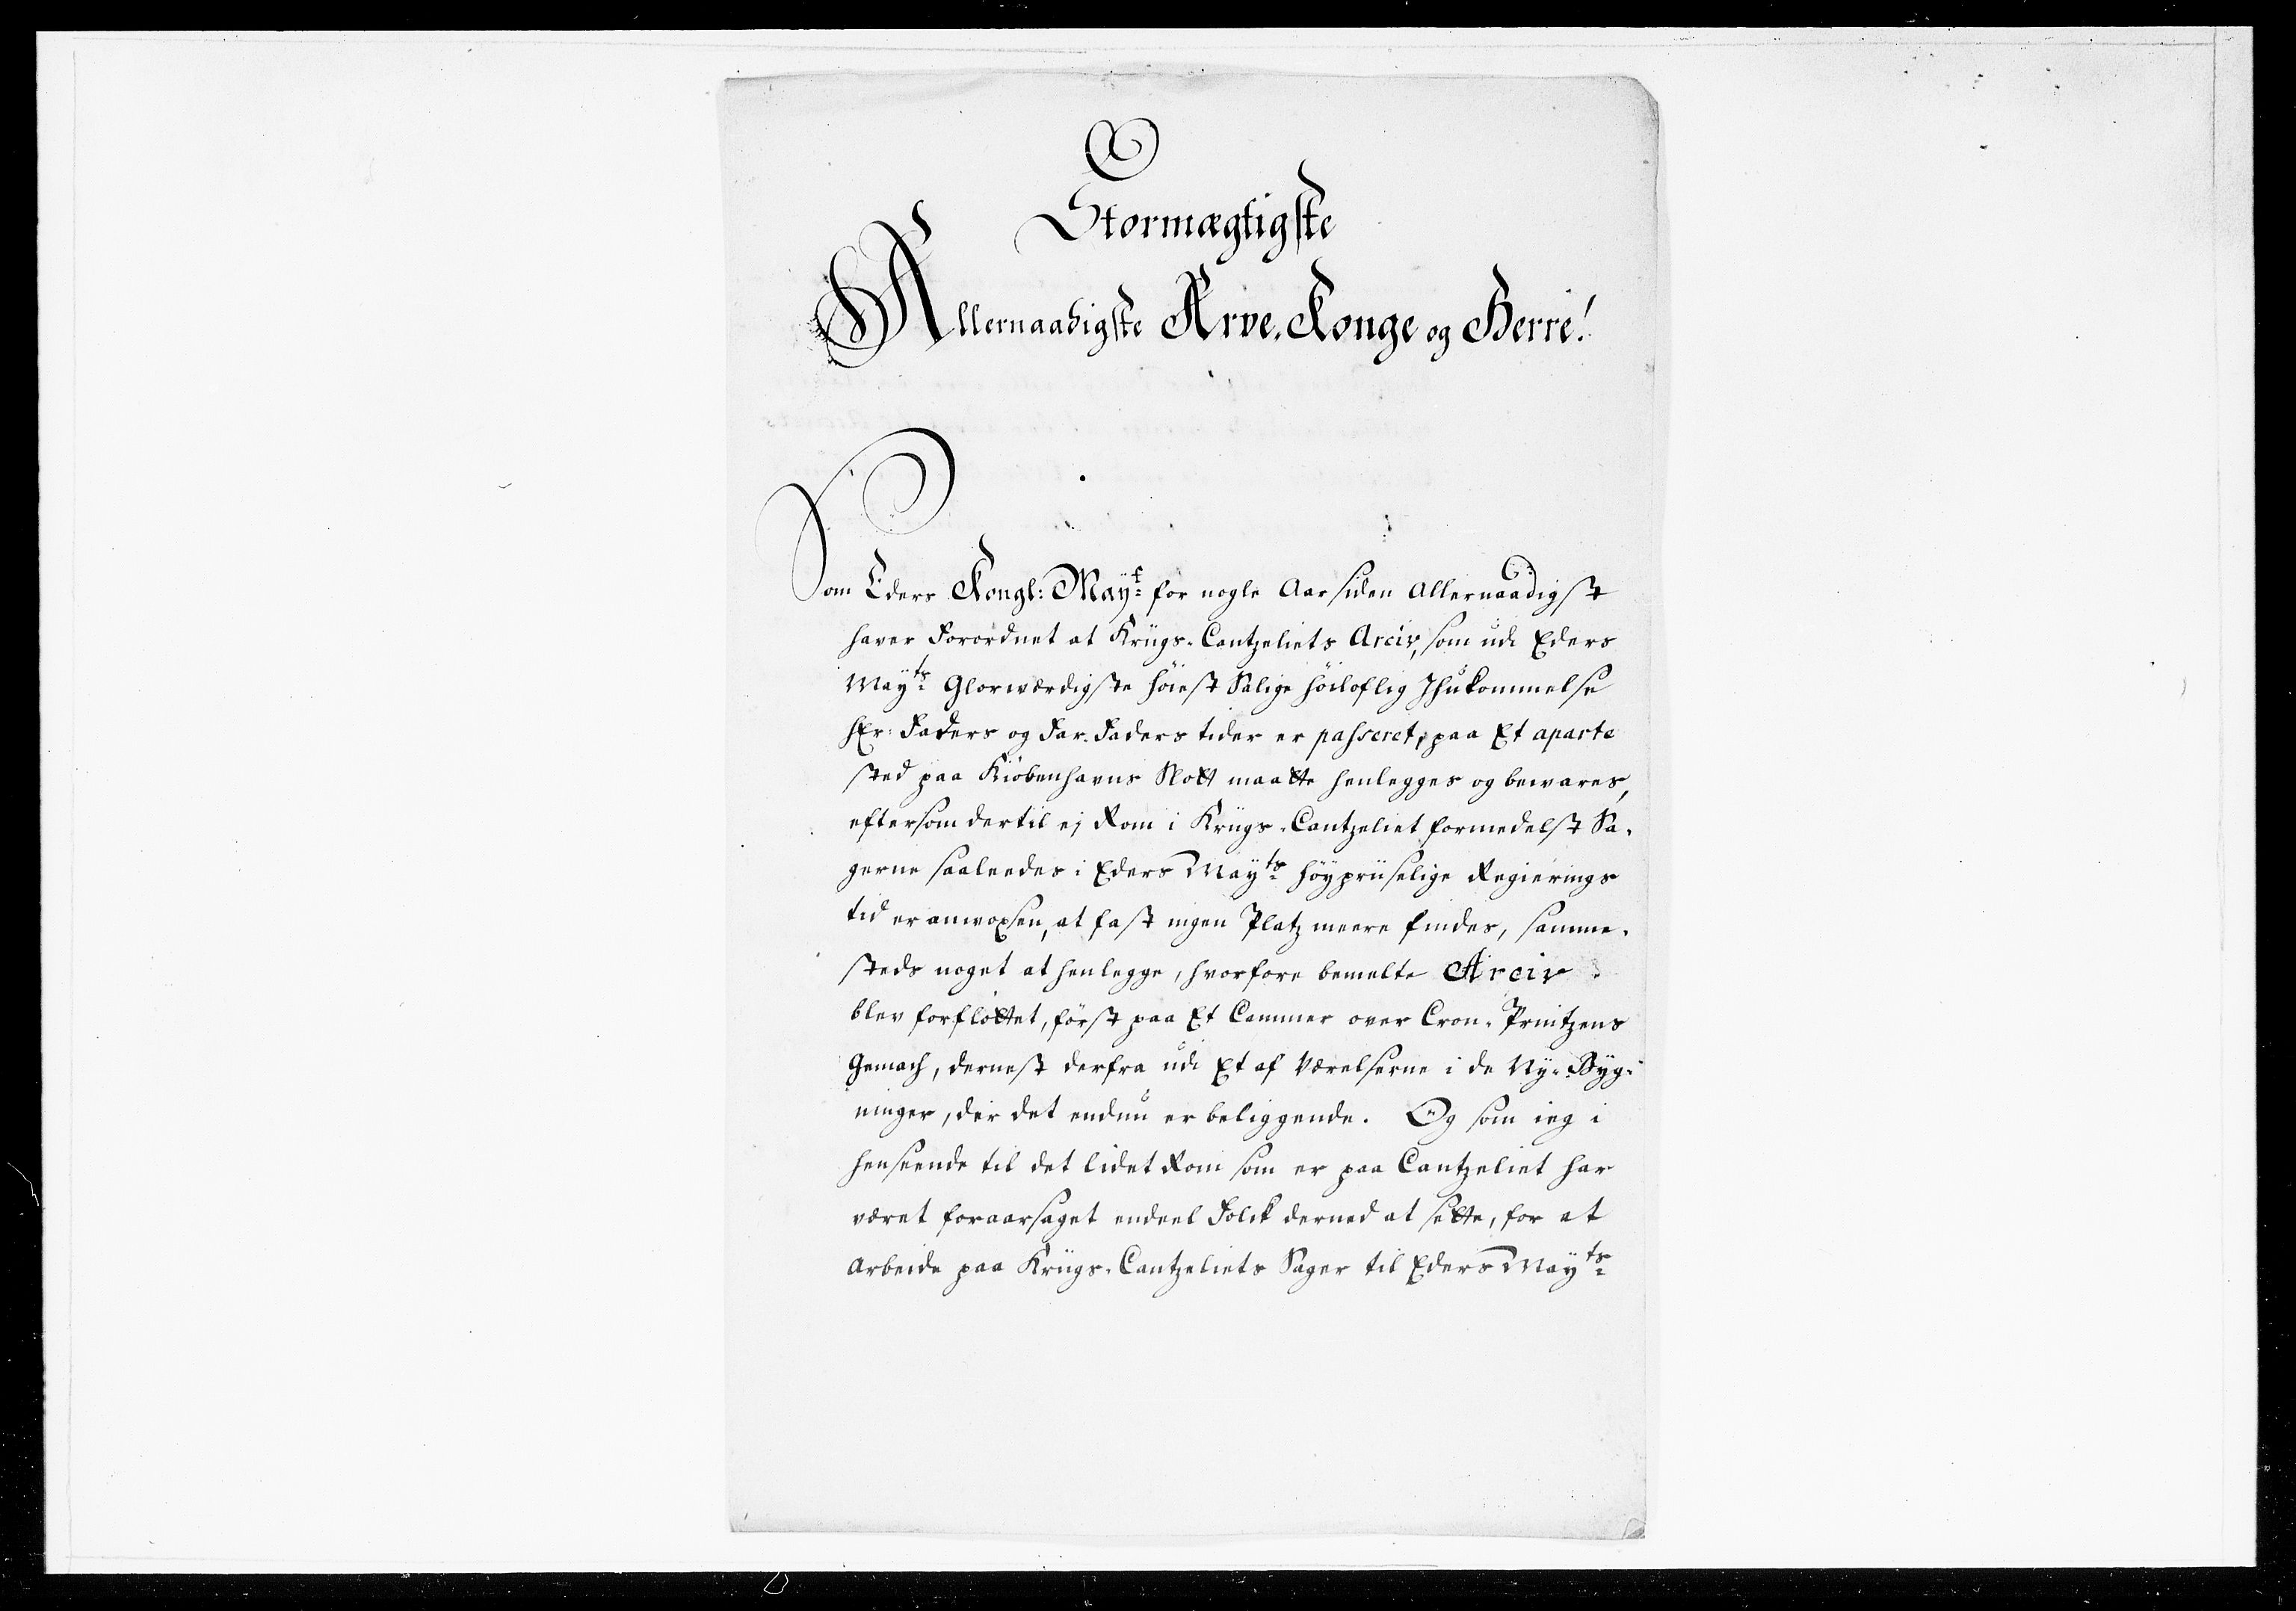 Stormægtigste
Allernaadigste Arve-Konge og Herre!
Som Eders Kongl: Mayt: for nogle Aar siden Allernaadigst
haver Forordnet at Kriigs-Cantzeliets Arciv, som udi Eders
Mayts: Glorværdigste höiest Salige höiloflig Jhukommelse
hEr: Faders og Far-Faders tider er passeret, paa Et aparte
sted paa Kiöbenhavns Slott maatte henlegges og bewares,
eftersom dertil ej Rom i Kriigs-Cantzeliet formedelst Sa-
gerne saaleedes i Eders Mayts: höypriiselige Regierings
tid er anvoxsen, at fast ingen Platz meere findes, samme-
steds noget at henlegge, hvorfore bemelte Arciv
blev forflöttet, först paa Et Cammer over Cron-Printzens
Gemach, dernest derfra udi Et af Værelserne i de Ny-Byg-
ninger, der det endnu er beliggende. Og som ieg i
henseende til det lidet Rom som er paa Cantzeliet har
været foraarsaget endeel Folck derned at sette, for at
arbeide paa Kriigs-Cantzeliets Sager til Eders Mayts: